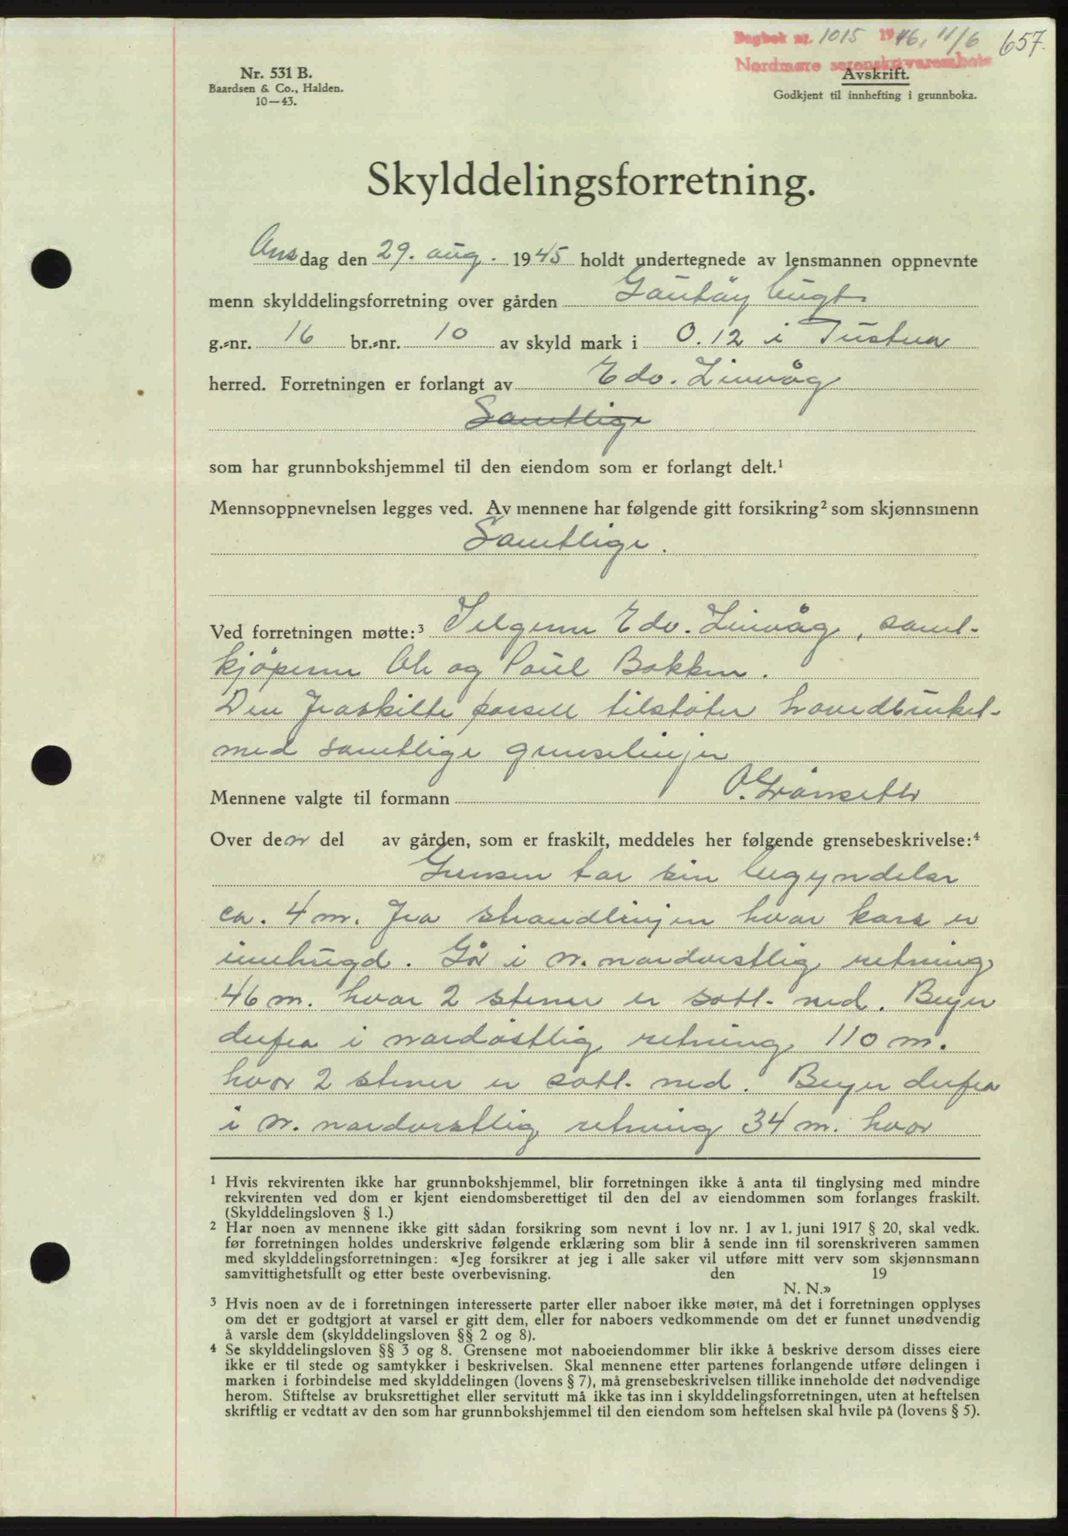 Dagbok nr. 1015 1946, 11/6 657.
Nordmøre sorenskriverembete
Nr. 531 B.
Baardsen & Co., Halden.
10—43.
Avskrift.
Godkjent til innhefting i grunnboka.
Skylddelingsforretning.
Onsdag den 29. aug. 1945 holdt undertegnede av lensmannen oppnevnte
menn skylddelingsforretning over gården
g.-nr. 16 br.-nr. 10 av skyld mark i 0.12 i Tustna
herred. Forretningen er forlangt av Edv. Linvåg
Samtlige
som har grunnbokshjemmel til den eiendom som er forlangt delt.¹
Mennsoppnevnelsen legges ved. Av mennene har følgende gitt forsikring² som skjønnsmenn
Samtlige.
Ved forretningen møtte:³ Selgeren Edv. Linvåg, samt-
kjøperne Ole og Paul Bakken.
Den fraskilte parsell tilstøter hovedbruket-
med samtlige grenselinjer
Mennene valgte til formann O. Grånseth
Over den del av gården, som er fraskilt, meddeles her følgende grensebeskrivelse:⁴
Grensen tar sin begyndelse
ca. 4 m. fra strandlinjen hvor kors er
innhugd. Går i n. nordvestlig retning
46 m. hvor 2 stener er satt- ned. Bøyer
derfra i nordøstlig retning 110 m.
hvor 2 stener er satt- ned. Bøyer derfra
i n. nordvestlig retning 34 m. hvor
¹ Hvis rekvirenten ikke har grunnbokshjemmel, blir forretningen ikke å anta til tinglysing med mindre
rekvirenten ved dom er kjent eiendomsberettiget til den del av eiendommen som forlanges fraskilt.
(Skylddelingsloven § 1.)
² Har noen av mennene ikke gitt sådan forsikring som nevnt i lov nr. 1 av 1. juni 1917 § 20, skal vedk.
før forretningen holdes underskrive følgende erklæring som blir å sende inn til sorenskriveren sammen
med skylddelingsforretningen: «Jeg forsikrer at jeg i alle saker vil utføre mitt verv som skjønnsmann
samvittighetsfullt og etter beste overbevisning. den 19
N. N.»
³ Hvis noen av de i forretningen interesserte parter eller naboer ikke møter, må det i forretningen opplyses
om det er godtgjort at varsel er gitt dem, eller for naboers vedkommende om det er funnet unødvendig
å varsle dem (skylddelingsloven §§ 2 og 8).
⁴ Se skylddelingsloven §§ 3 og 8. Grensene mot naboeiendommer blir ikke å beskrive dersom disses eiere
ikke er til stede og samtykker i beskrivelsen. Skal mennene etter partenes forlangende utføre delingen i
marken i forbindelse med skylddelingen (lovens § 7), må grensebeskrivelsen tillike inneholde det nødvendige
herom. Stiftelse av bruksrettighet eller servitutt må ikke tas inn i skylddelingsforretningen, uten at heftelsen
skriftlig er vedtatt av den som har grunnbokshjemmel til den eiendom som heftelsen skal hvile på (lovens § 5).